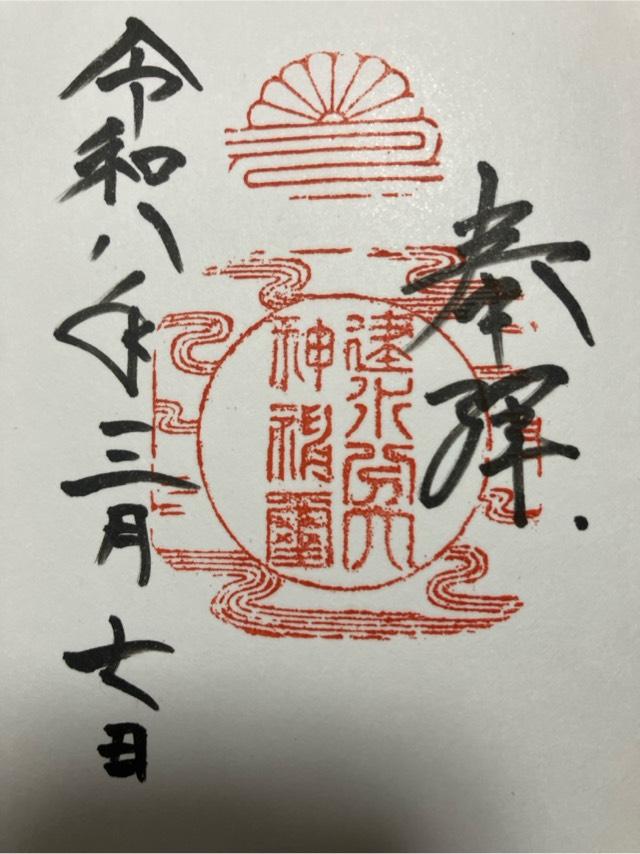 奉拝
建水分大
神
令和八年三月七日